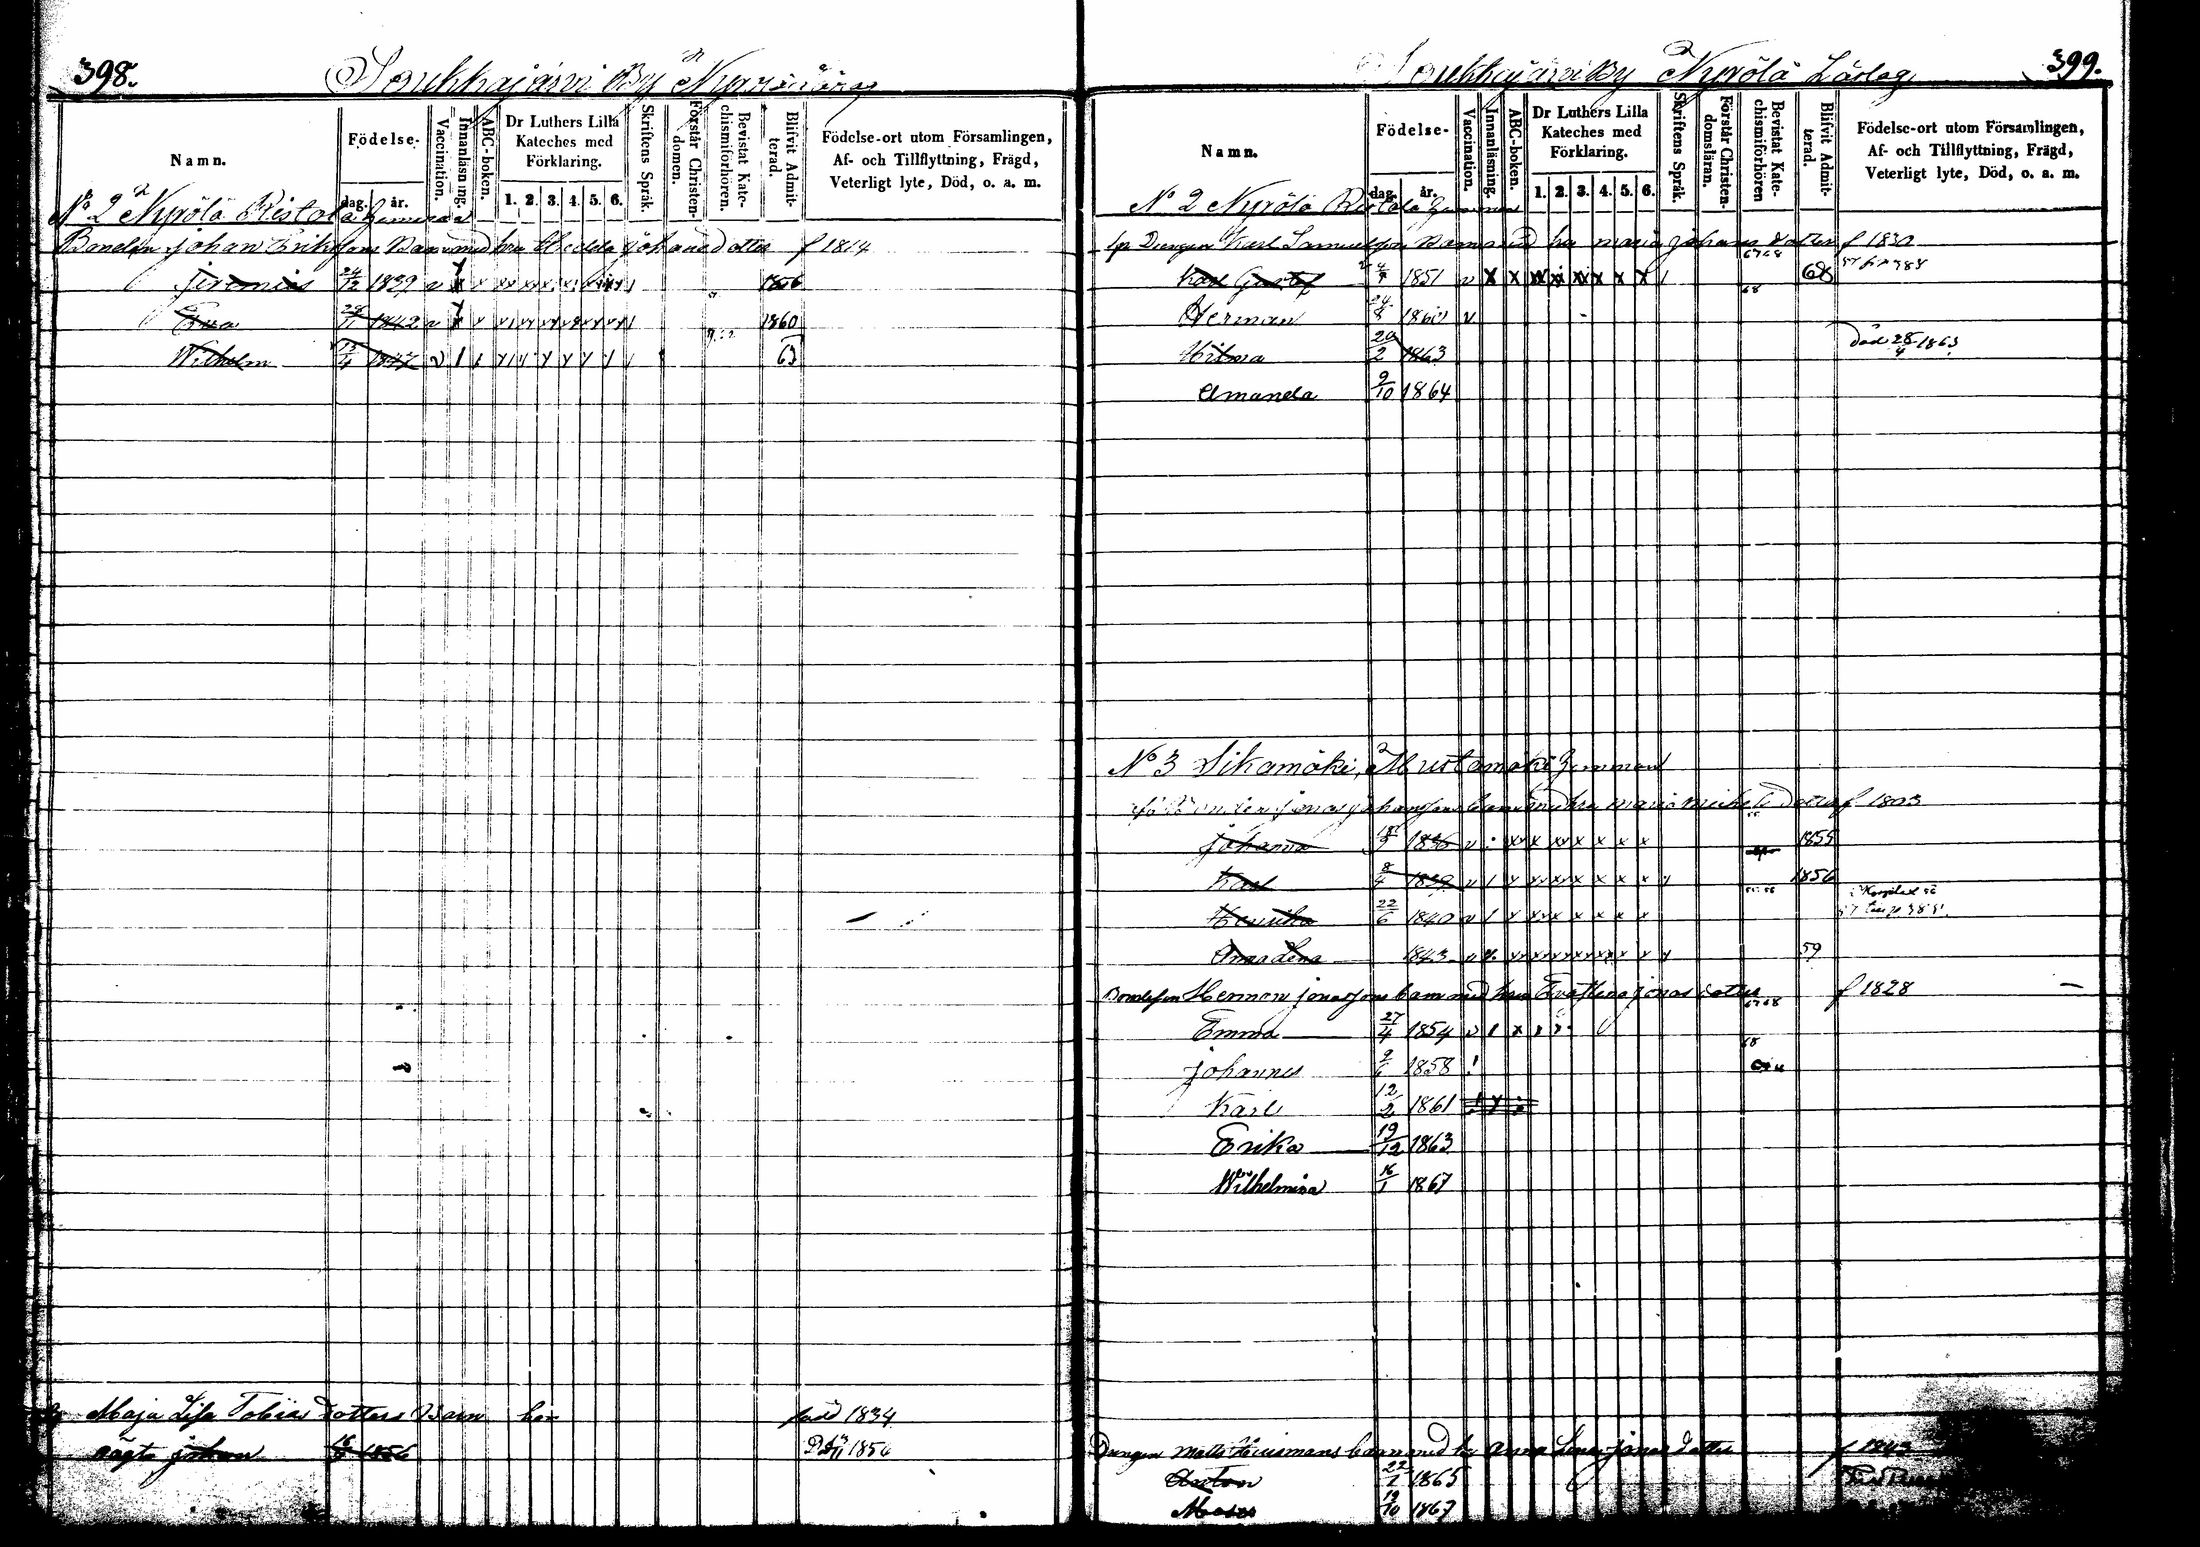 398.
Soukkajärvi By Nyrölä
Namn.
Födelse-
dag. år.
Vaccination.
Innanläsning.
ABC-boken.
Dr Luthers Lilla Kateches med Förklaring.
1. 2. 3. 4. 5. 6.
Skriftens Språk.
Förstår Christendomen.
Bevistat Katechismiförhören.
Blifvit Admitterad.
Födelse-ort utom Församlingen, Af- och Tillflyttning, Frägd, Veterligt lyte, Död, o. a. m.
No 2 Nyrölä Ristola hemman
Bonden Johan Eriksons Barn med hru Johansdotter f 1814
Jeremias 24/12 1839 v 1856
Eva 28/11 1842 v 1860
Wilhelm 1847 v 63
Maja Lisa Tobias dotters Barn född 1834
oägta Johan 1856 1856
399.
Soukkajärvi By Nyrölä Läslag
Namn.
Födelse-
dag. år.
Vaccination.
Innanläsning.
ABC-boken.
Dr Luthers Lilla Kateches med Förklaring.
1. 2. 3. 4. 5. 6.
Skriftens Språk.
Förstår Christendomsläran.
Bevistat Katechismiförhören
Blifvit Admitterad.
Födelse-ort utom Församlingen, Af- och Tillflyttning, Frägd, Veterligt lyte, Död, o. a. m.
No 2 Nyrölä Ristola hemman
Drengen Karl Samuelsson Barn med hu Maria Johans dotter f 1830
6768
Karl Gustaf 1851 v 68 68
Herman 24/8 1860 v
Hilma 20/2 1863 död 28/4 1863
Amanda 9/10 1864
No 3 Sikamäki, Mustamäki hemman
Bonden Jonas Johanssons barn med hru Maria Michels dotter f 1803
Johanna 1836 v 1855
Karl 8/4 1839 v 1856
Henrika 22/6 1840 v
Anna Lena 1843 v 59
Bondeson Herman Jonassons barn med hru Eva Lena Jonas dotter f 1828
6768
Emma 27/4 1854 v 68
Johannes 9/6 1858
Karl 12/2 1861
Erika 19/12 1863
Wilhelmina 16/1 1867
Drengen Matts barn med hu Anna Lena Jonas dotter f 1843
Anton 22/1 1865
Moses 19/10 1867